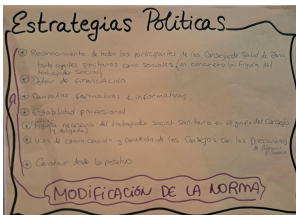 Estrategias Políticas
Reconocimiento de todos los participantes de los Consejos de Salud de Zona,
tanto agentes sanitarios como sociales (en concreto la figura del
trabajador social)
Dotar de financiación
Campañas formativas e informativas
Estabilidad profesional
necesaria del trabajador social Sanitario en el grupo del Consejo
Vías de comunicación y contida de los Consejos con las
Construir desde lo positivo
MODIFICACIÓN DE LA NORMA